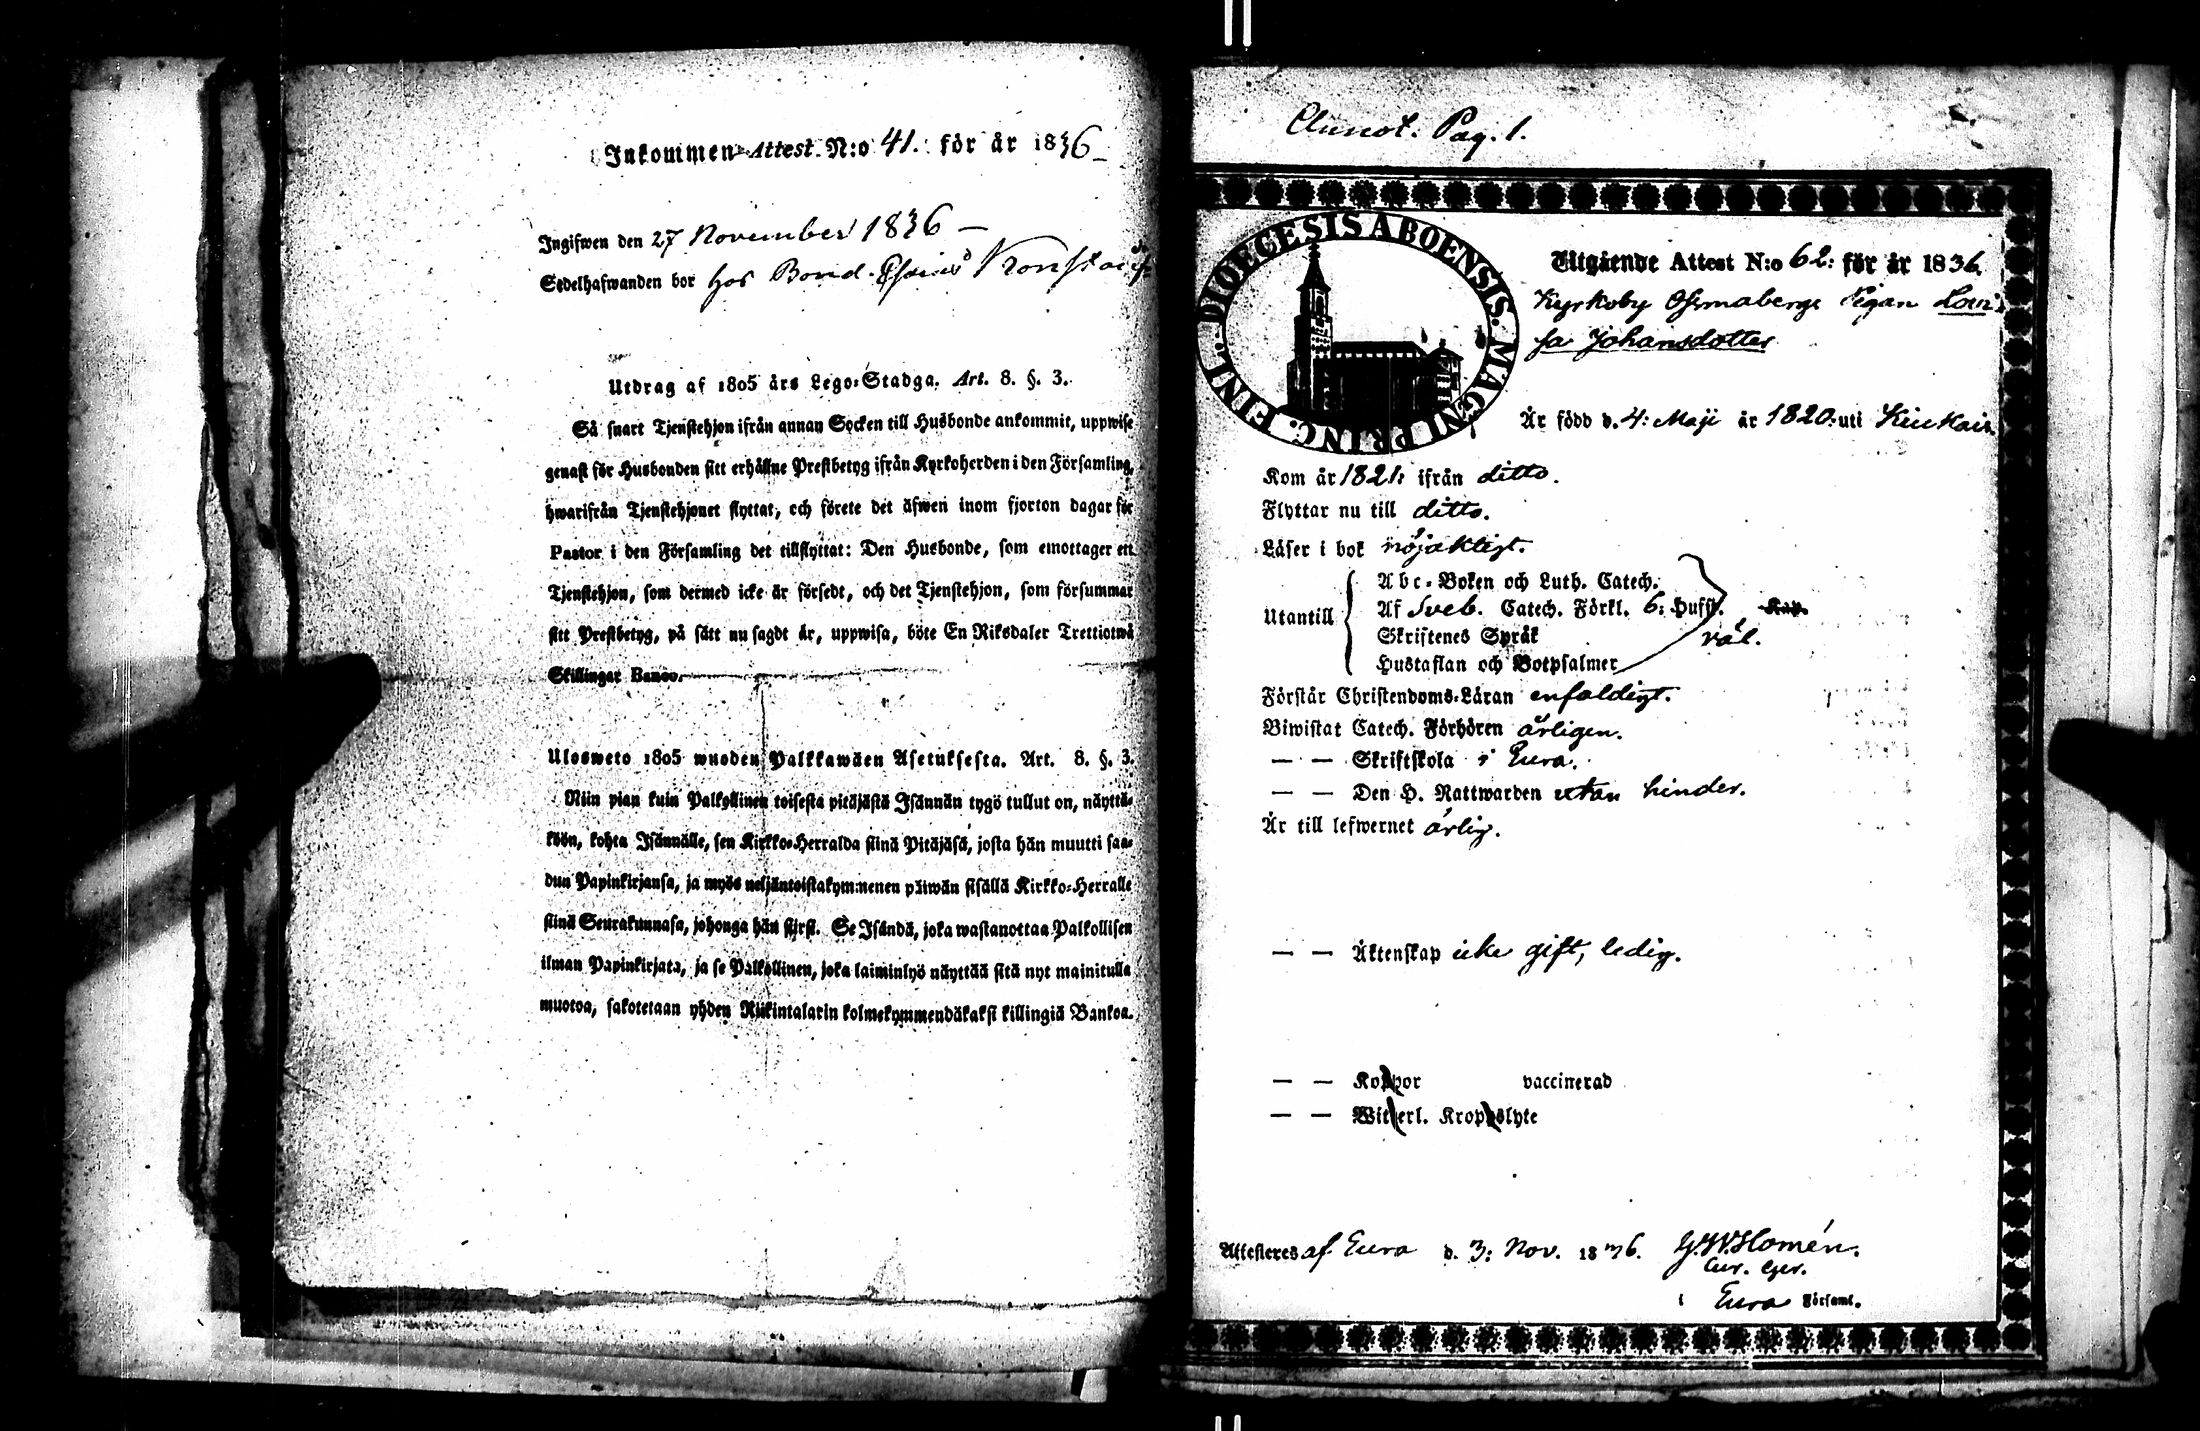 Inkommen Attest N:o 41. för år 1836
Ingifwen den 27 November 1836 —
Sedelhafwanden bor hos Bond. Esaias
Utdrag af 1805 års Lego-Stadga. Art. 8. §. 3.
Så snart Tjenstehjon ifrån annan Socken till Husbonde ankommit, uppwise
genast för Husbonden sitt erhållne Prestbetyg ifrån Kyrkoherden i den Församling,
hwarifrån Tjenstehjonet flyttat, och förete det äfwen inom fjorton dagar för
Pastor i den Församling det tillflyttat: Den Husbonde, som emottager ett
Tjenstehjon, som dermed icke är försedt, och det Tjenstehjon, som försummar
sitt Prestbetyg, på sätt nu sagdt är, uppwisa, böte En Riksdaler Trettiotwå
Skillingar Banco.
Ulosweto 1805 wuoden Palkkawäen Asetuksesta. Art. 8. §. 3.
Niin pian kuin Palkollinen toisesta pitäjästä Isännän tygö tullut on, näyttä-
köön, kohta Isännälle, sen Kirkko-Herralda siinä Pitäjäsä, josta hän muutti saa-
dun Papinkirjansa, ja myös neljäntoistakymmenen päiwän sisällä Kirkko-Herralle
siinä Seurakunnasa, johonga hän siirsi. Se Isändä, joka wastanottaa Palkollisen
ilman Papinkirjata, ja se Palkollinen, joka laiminlyö näyttää sitä nyt mainitulla
muotoa, sakotetaan yhden Riikintalarin kolmekymmendäkaksi killingiä Bankoa.
Annot. Pag. 1.
DIOECESIS ABOENSIS. MAGNI PRINC. FINL.
Utgående Attest N:o 62: för år 1836.
Kyrkoby Pigan Loui
sa Johansdotter
Är född d. 4: Maji år 1820: uti Kiukais.
Kom år 1821: ifrån ditto.
Flyttar nu till ditto.
Läser i bok nöjaktigt.
Utantill
Abc-Boken och Luth. Catech.
Af Sveb. Catech. Förkl. 6: Hufst. Kap.
Skriftenes Språk väl.
Hustaflan och Botpsalmer
Förstår Christendoms-Läran enfaldigt.
Biwistat Catech. Förhören årligen.
— — Skriftskola i Eura.
— — Den H. Nattwarden utan hinder.
Är till lefwernet ärlig.
— — Äktenskap icke gift, ledig.
— — Koppor vaccinerad
— — Witterl. Kroppslyte
Attesteres af Eura d. 3: Nov. 1836. G. W. Homén.
Cur. Ger.
i Eura Församl.